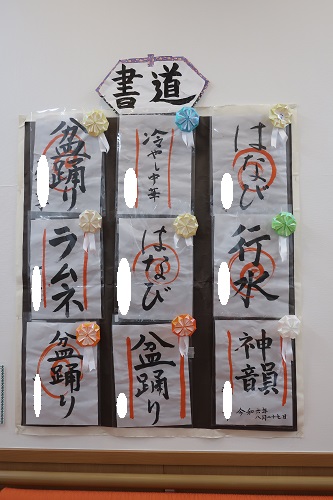 書道
盆踊り
冷やし中華
はなび
ラムネ
はなび
行水
盆踊り
盆踊り
神韻
令和六年
八月二十七日